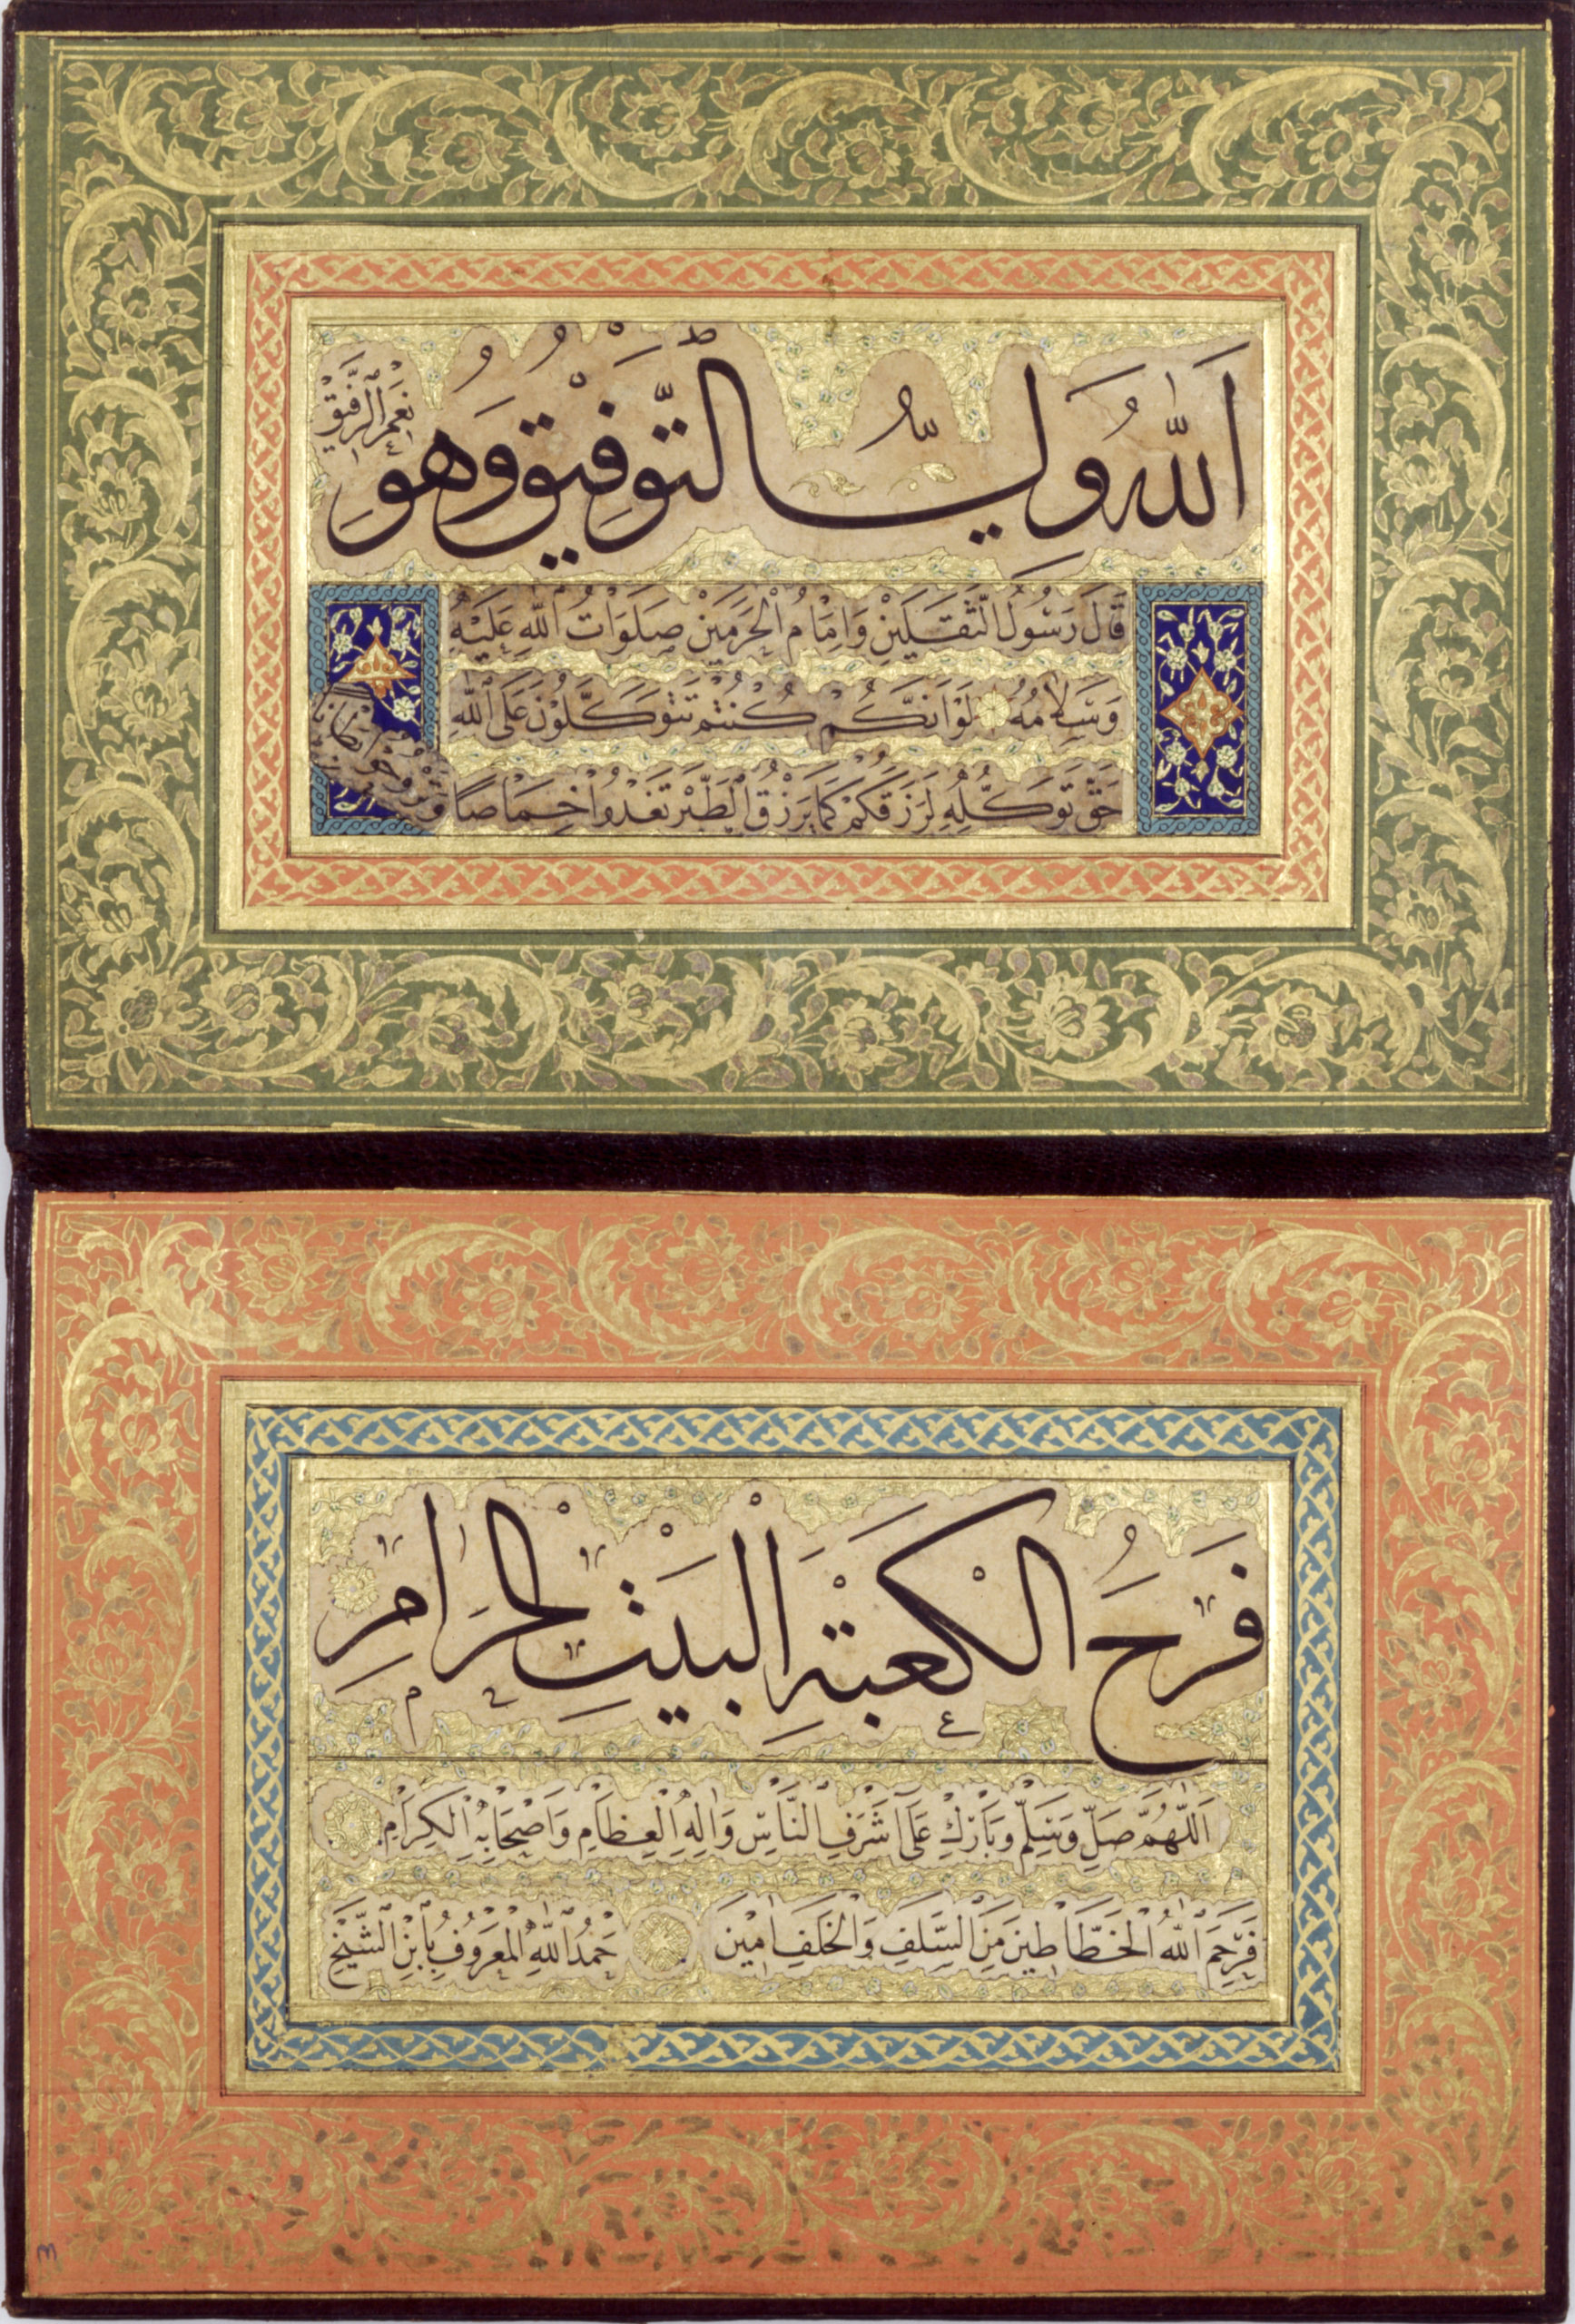 اَللّٰهُ وَلِيُّ التَّوْفِيْقِ وَهُوَ
نِعْمَ الرَّفِيْقُ
قَالَ رَسُولُ الثَّقَلَيْنِ وَاِمَامُ الْحَرَمَيْنِ صَلَوَاتُ اللّٰهِ عَلَيْهِ
وَسَلَامُهُ لَوْ اَنَّكُمْ كُنْتُمْ تَتَوَكَّلُوْنَ عَلَى اللّٰهِ
حَقَّ تَوَكُّلِهِ لَرَزَقَكُمْ كَمَا يَرْزُقُ الطَّيْرَ تَغْدُوا خِمَاصًا
وَتَرُوحُ بِطَانًا
فَرَحُ الْكَعْبَةِ الْبَيْتِ الْحَرَامِ
اَللّٰهُمَّ صَلِّ وَسَلِّمْ وَبَارِكْ عَلَى اَشْرَفِ النَّاسِ وَاٰلِهِ الْعِظَامِ وَاَصْحَابِهِ الْكِرَامِ
فَرَحِمَ اللّٰهُ الْخَطَّاطِينَ مِنَ السَّلَفِ وَالْخَلَفِ اٰمِيْنَ حَمْدُ اللّٰهِ الْمَعْرُوفُ بِابْنِ الشَّيْخِ